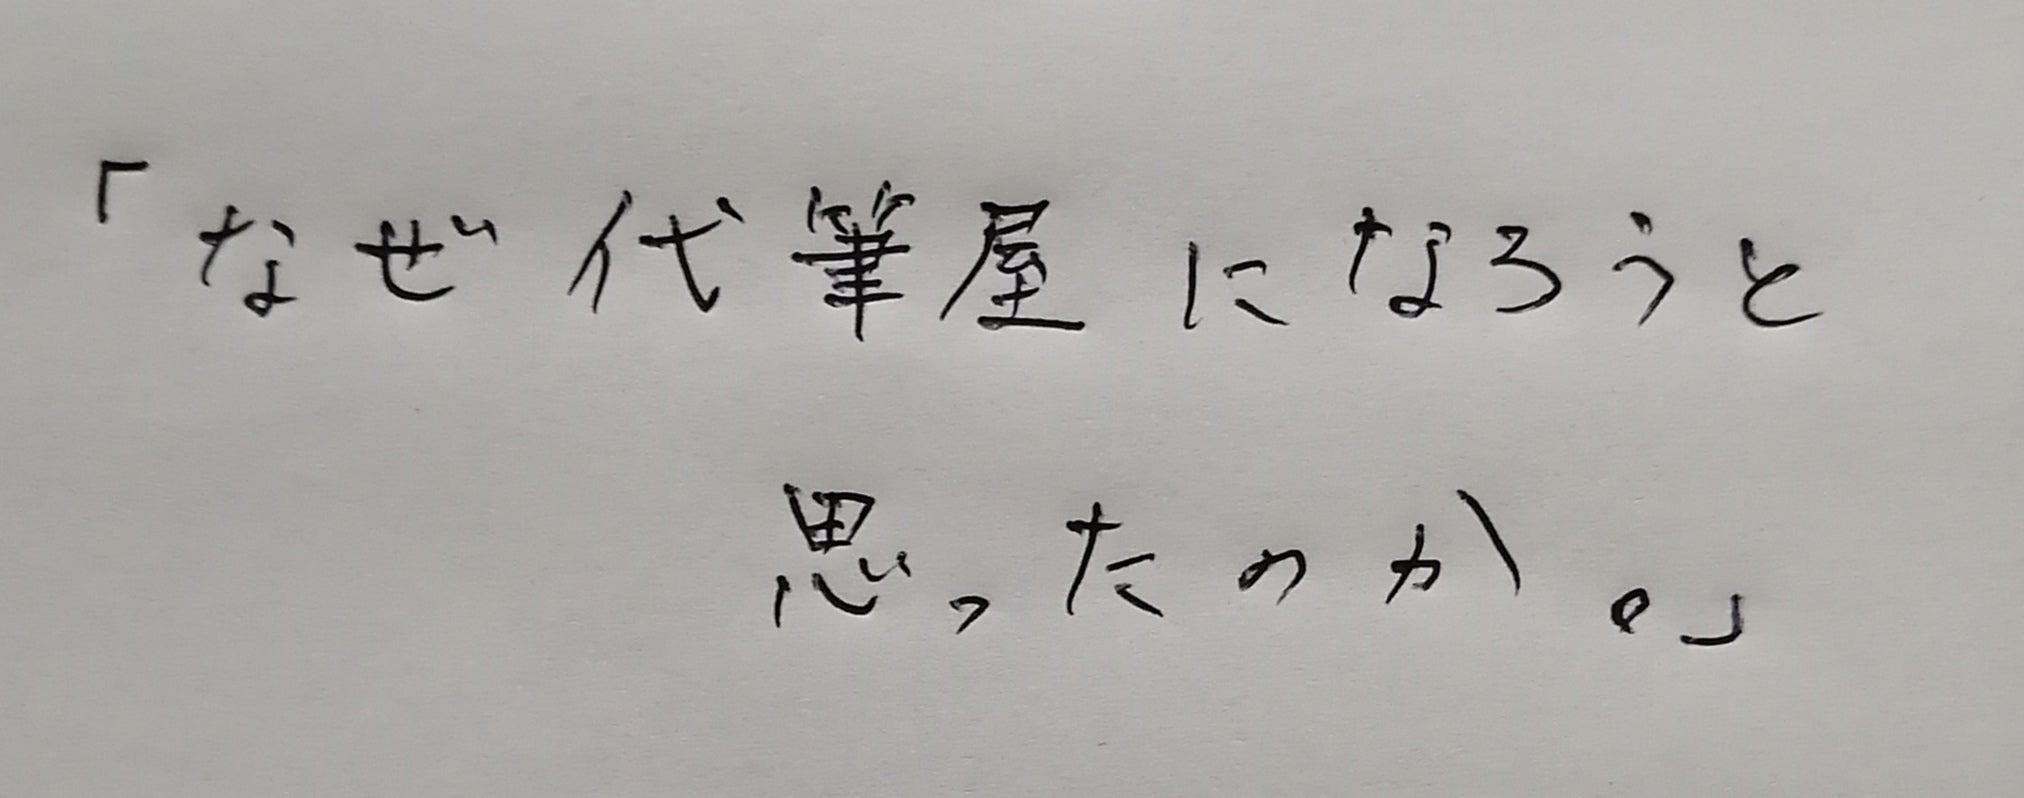 「なぜ代筆屋になろうと
思ったのか。」